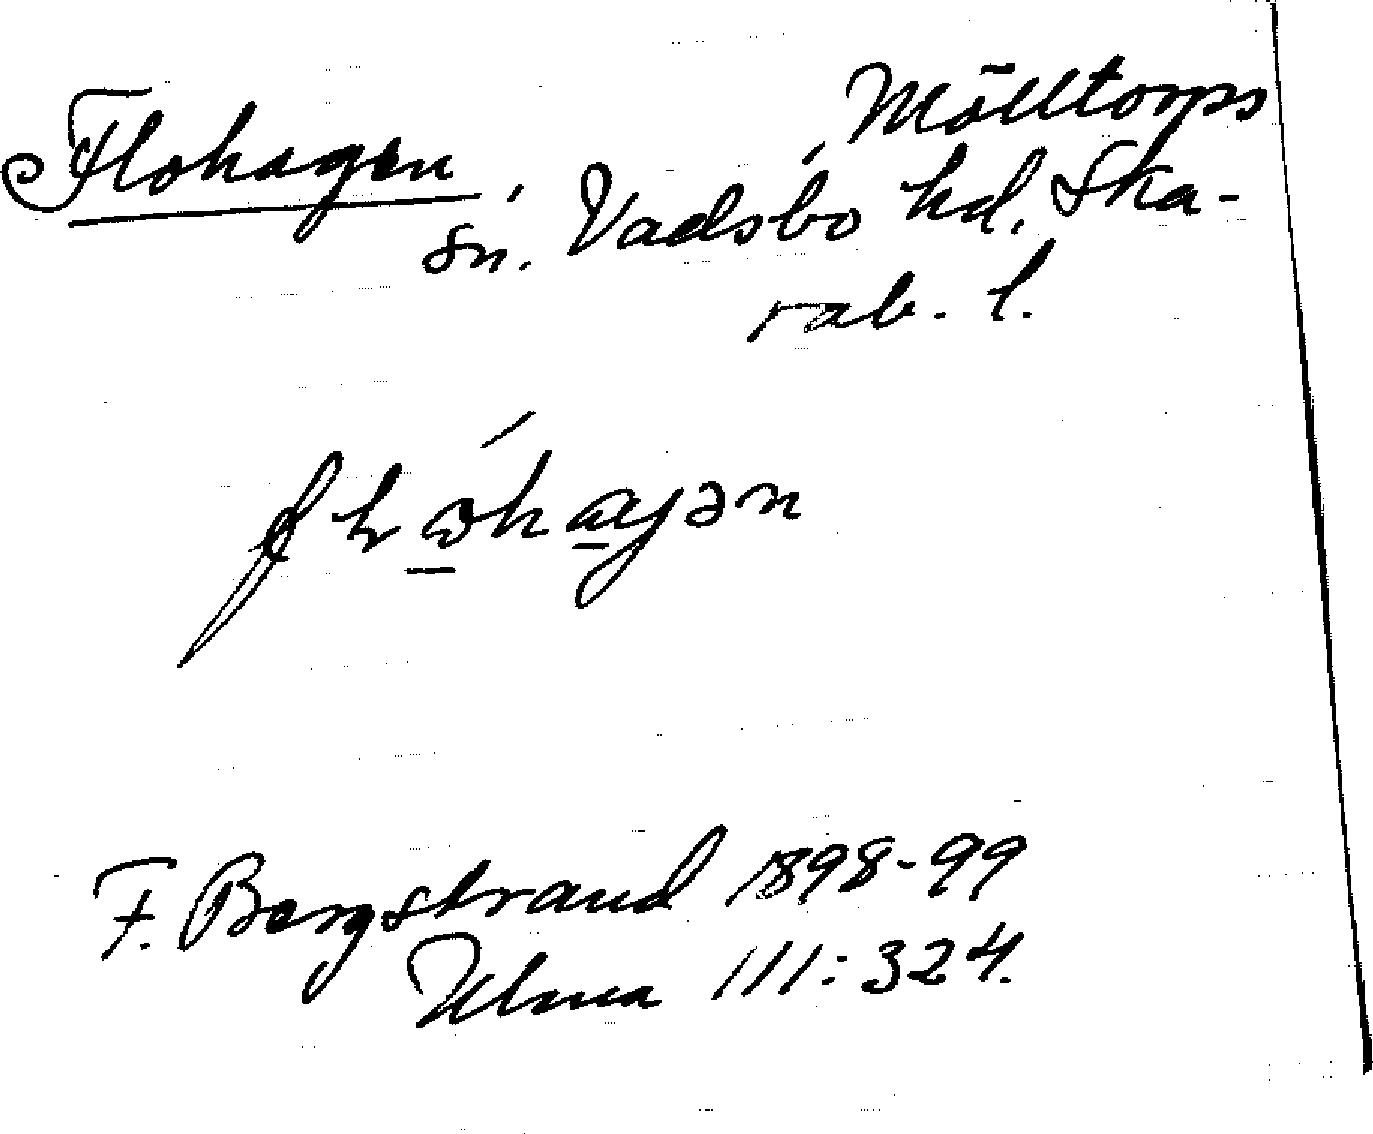 Flohagen, Mölltorps
sn. Vadsbo hd. Ska-
rab. l.
F. Bergstrand 1898-99
Ulma 111:324.